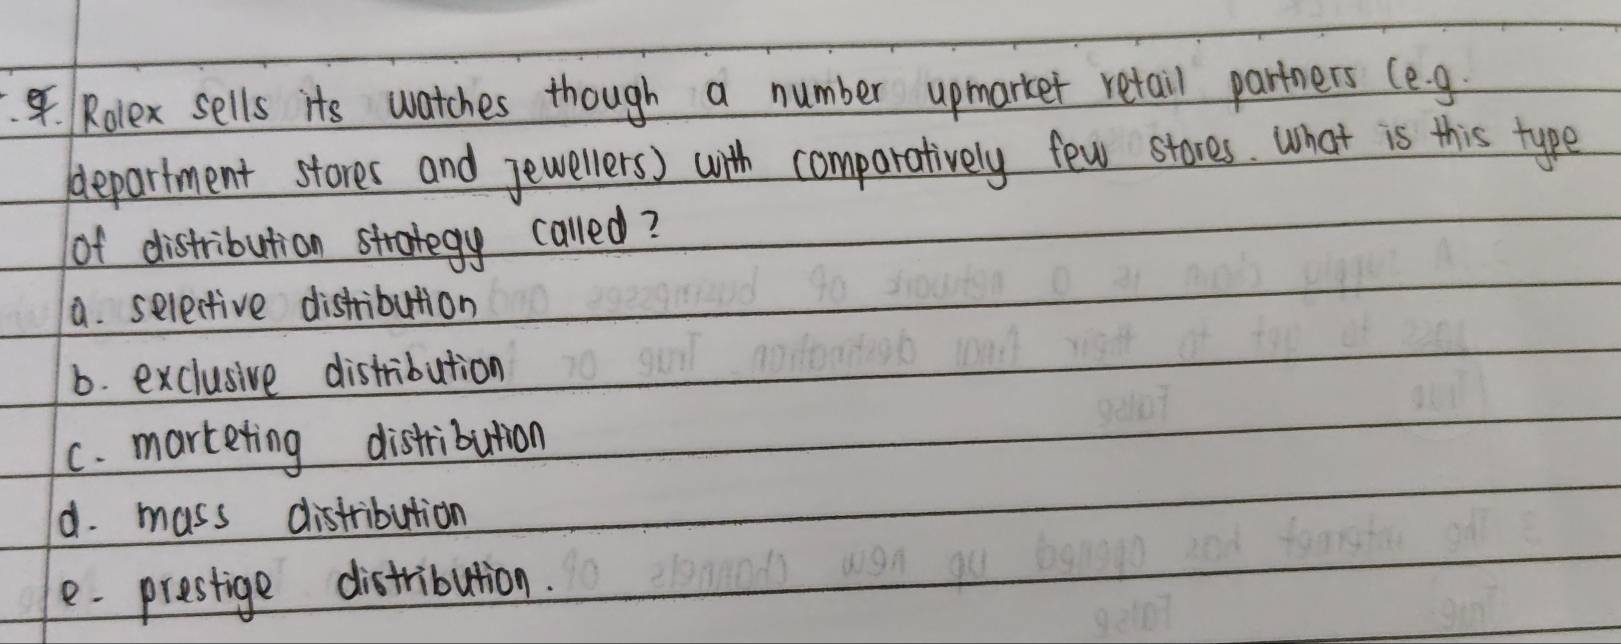 Rolex sells its watches though a number upmarket retail partners (e.g.
department stores and jewellers) with comparatively few stores. What is this type
of distribution strategy called?
a. selective distribution
b. exclusive distribution
c. marketing distribution
d. mass distribution
e. prestige distribution.